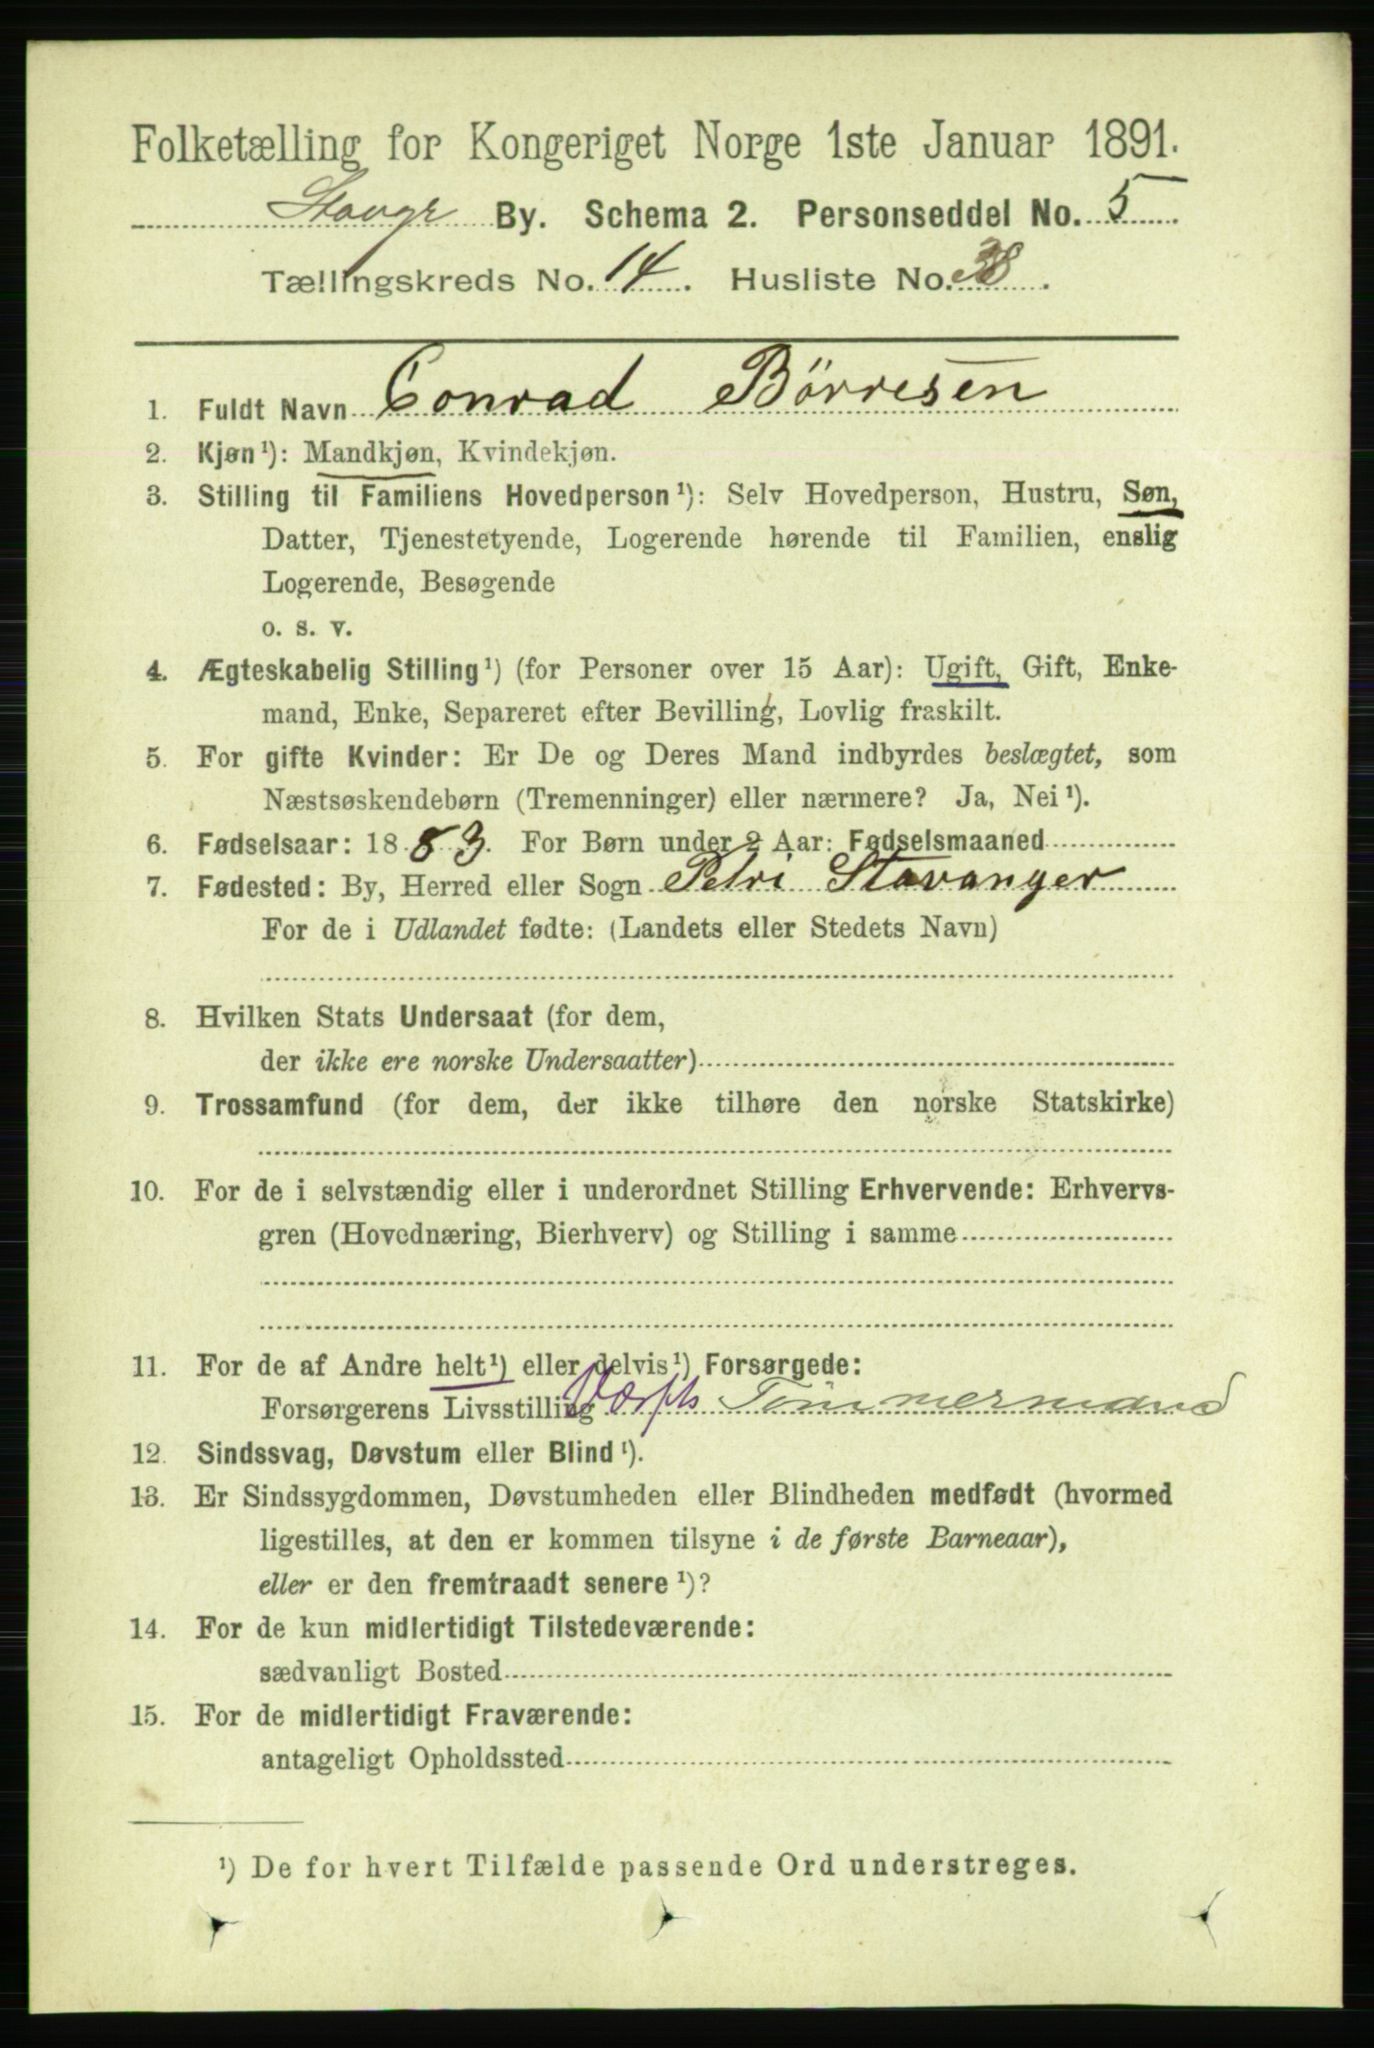 Folketælling for Kongeriget Norge 1ste Januar 1891.
Stavgr By. Schema 2. Personseddel No. 5
Tællingskreds No. 14. Husliste No. 38.
1. Fuldt Navn Conrad Börresen
2. Kjøn¹): Mandkjøn, Kvindekjøn.
3. Stilling til Familiens Hovedperson¹): Selv Hovedperson, Hustru, Søn,
Datter, Tjenestetyende, Logerende hørende til Familien, enslig
Logerende, Besøgende
o. s. v.
4. Ægteskabelig Stilling¹) (for Personer over 15 Aar): Ugift, Gift, Enke-
mand, Enke, Separeret efter Bevilling, Lovlig fraskilt.
5. For gifte Kvinder: Er De og Deres Mand indbyrdes beslægtet, som
Næstsøskendebørn (Tremenninger) eller nærmere? Ja, Nei¹).
6. Fødselsaar: 1883. For Børn under 2 Aar: Fødselsmaaned
7. Fødested: By, Herred eller Sogn Petri Stavanger
For de i Udlandet fødte: (Landets eller Stedets Navn)
8. Hvilken Stats Undersaat (for dem,
der ikke ere norske Undersaatter)
9. Trossamfund (for dem, der ikke tilhøre den norske Statskirke)
10. For de i selvstændig eller i underordnet Stilling Erhvervende: Erhvervs-
gren (Hovednæring, Bierhverv) og Stilling i samme
11. For de af Andre helt¹) eller delvis¹) Forsørgede:
Forsørgerens Livsstilling Tömmermand
12. Sindssvag, Døvstum eller Blind¹).
13. Er Sindssygdommen, Døvstumheden eller Blindheden medfødt (hvormed
ligestilles, at den er kommen tilsyne i de første Barneaar),
eller er den fremtraadt senere¹)?
14. For de kun midlertidigt Tilstedeværende:
sædvanligt Bosted
15. For de midlertidigt Fraværende:
antageligt Opholdssted
¹) De for hvert Tilfælde passende Ord understreges.